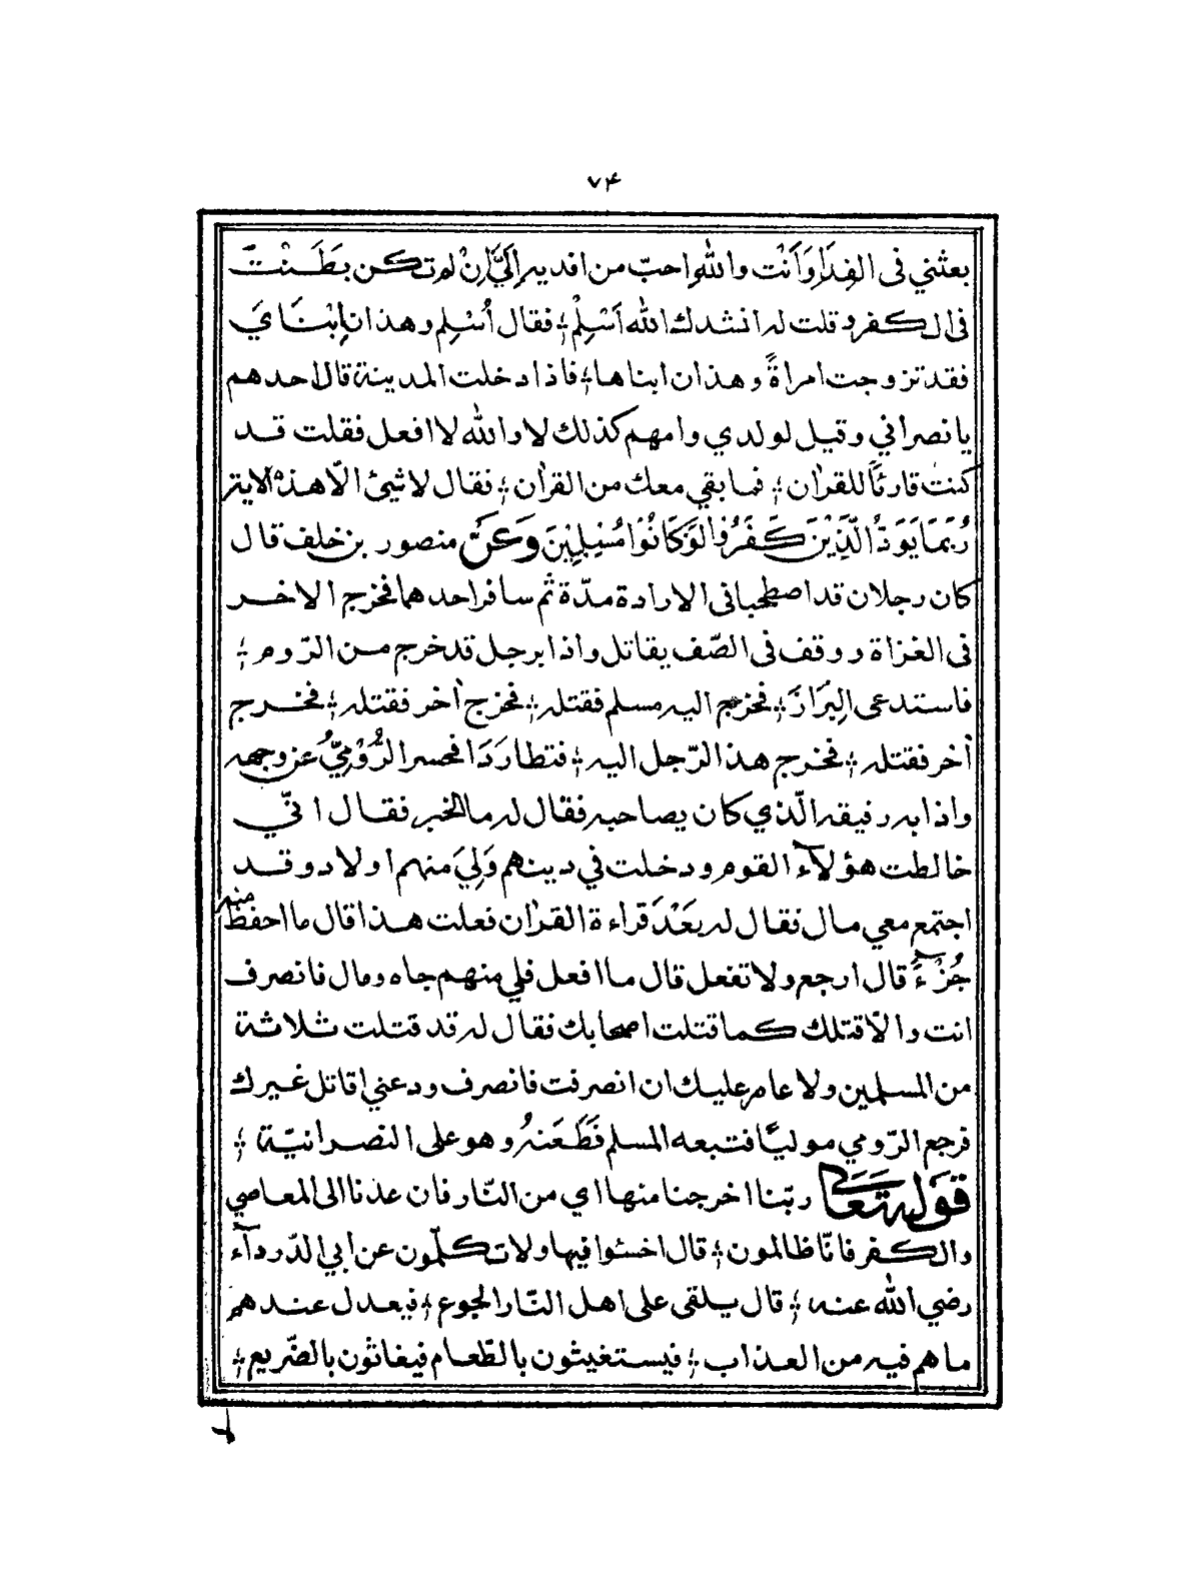 ۷۴
بعثني فى الفِدَآءِ وَاَنْت والله احبّ من افديه اِلَيَّ اِنْ لم تكن بطَنْتَ
فى الكفر وقلت له انشدك الله اَسْلِمْ ؛ فقال اُسْلِم وهذان اِبْنَايَ
فقد تزوجت امراةً وهذان ابناها ؛ فاذا دخلت المدينة قال احدهم
يا نصراني وقيل لولدي وامهم كذلك لا والله لا افعل فقلت قد
كنت قارئاً للقرآن ؛ فما بقي معك من القرآن ؛ فقال لا شيئ الّا هذه الاية
رُبَمَا يَوَدُّ الَّذِيْنَ كَفَرُوْا لَوْ كَانُوْا مُسْلِمِيْنَ وَعَنْ منصور بن خلف قال
كان رجلان قد اصطحبا فى الارادة مدّة ثم سافر احدهما فخرج الاخر
فى الغزاة ووقف فى الصّف يقاتل واذا برجل قد خرج من الرّوم ؛
فاستدعى البِرَازَ ؛ فخرج اليه مسلم فقتله ؛ فخرج آخر فقتله ؛ فخرج
آخر فقتله ؛ فخرج هذا الرّجل اليه ؛ فتطارَدَا فحسر الرُّوْمِيُّ عن وجهه
واذا به رفيقه الّذي كان يصاحبه فقال له ما الخبر فقال انّي
خالطت هؤلآء القوم ودخلت في دينهم وَلِيَ منهم اولاد وقد
اجتمع معي مال فقال له بَعْدَ قراءة القرآن فعلت هذا قال ما احفظ منه
جُزْءً قال ارجع ولا تفعل قال ما افعل فلي منهم جاه ومال فانصرف
انت والّا قتلك كما قتلت اصحابك فقال له قد قتلت ثلاثة
من المسلمين ولا عار عليك ان انصرفت فانصرف ودعني اقاتل غيرك
فرجع الرّومي موليًّا فتبعه المسلم فَطَعَنَهُ وهو على النصرانيّة ؛
قَوْلُه تَعَالٰى ربّنا اخرجنا منها اي من النّار فان عدنا الى المعاصي
والكفر فانّا ظالمون ؛ قال اخسئوا فيها ولا تكلّمون عن ابي الدّرداء
رضي الله عنه ؛ قال يلقى على اهل النّار الجوع ؛ فيعدل عندهم
ما هم فيه من العذاب ؛ فيستغيثون بالطّعام فيغاثون بالضّريع ؛